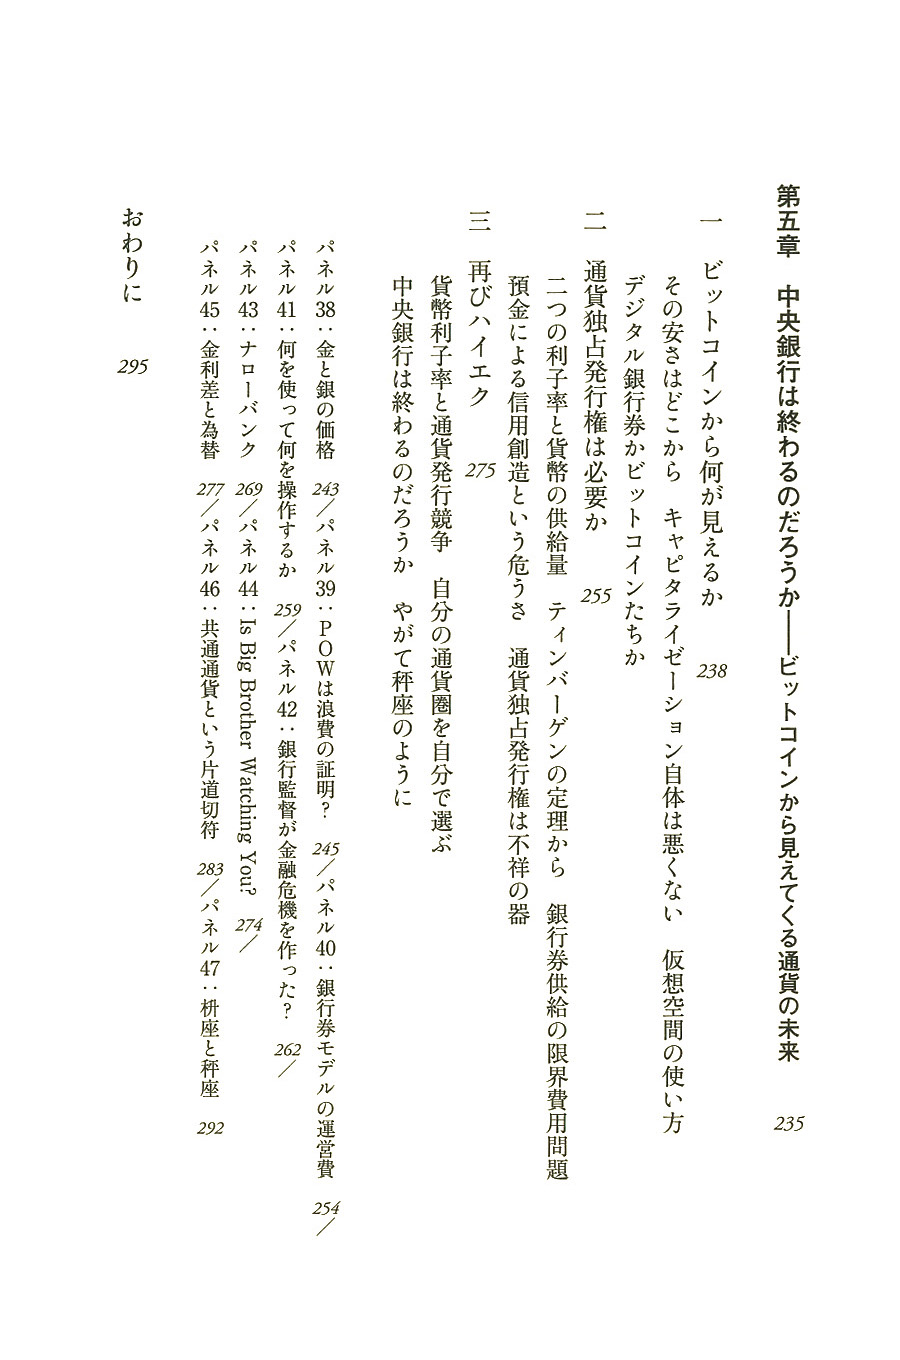 第五章　中央銀行は終わるのだろうか――ビットコインから見えてくる通貨の未来　235
一　ビットコインから何が見えるか　238
その安さはどこから　キャピタライゼーション自体は悪くない　仮想空間の使い方
デジタル銀行券かビットコインたちか
二　通貨独占発行権は必要か　255
二つの利子率と貨幣の供給量　ティンバーゲンの定理から　銀行券供給の限界費用問題
預金による信用創造という危うさ　通貨独占発行権は不祥の器
三　再びハイエク　275
貨幣利子率と通貨発行競争　自分の通貨圏を自分で選ぶ
中央銀行は終わるのだろうか　やがて秤座のように
パネル38：金と銀の価格　243／パネル39：POWは浪費の証明？　245／パネル40：銀行券モデルの運営費　254／
パネル41：何を使って何を操作するか　259／パネル42：銀行監督が金融危機を作った？　262／
パネル43：ナローバンク　269／パネル44：Is Big Brother Watching You?　274／
パネル45：金利差と為替　277／パネル46：共通通貨という片道切符　283／パネル47：枡座と秤座　292
おわりに　295